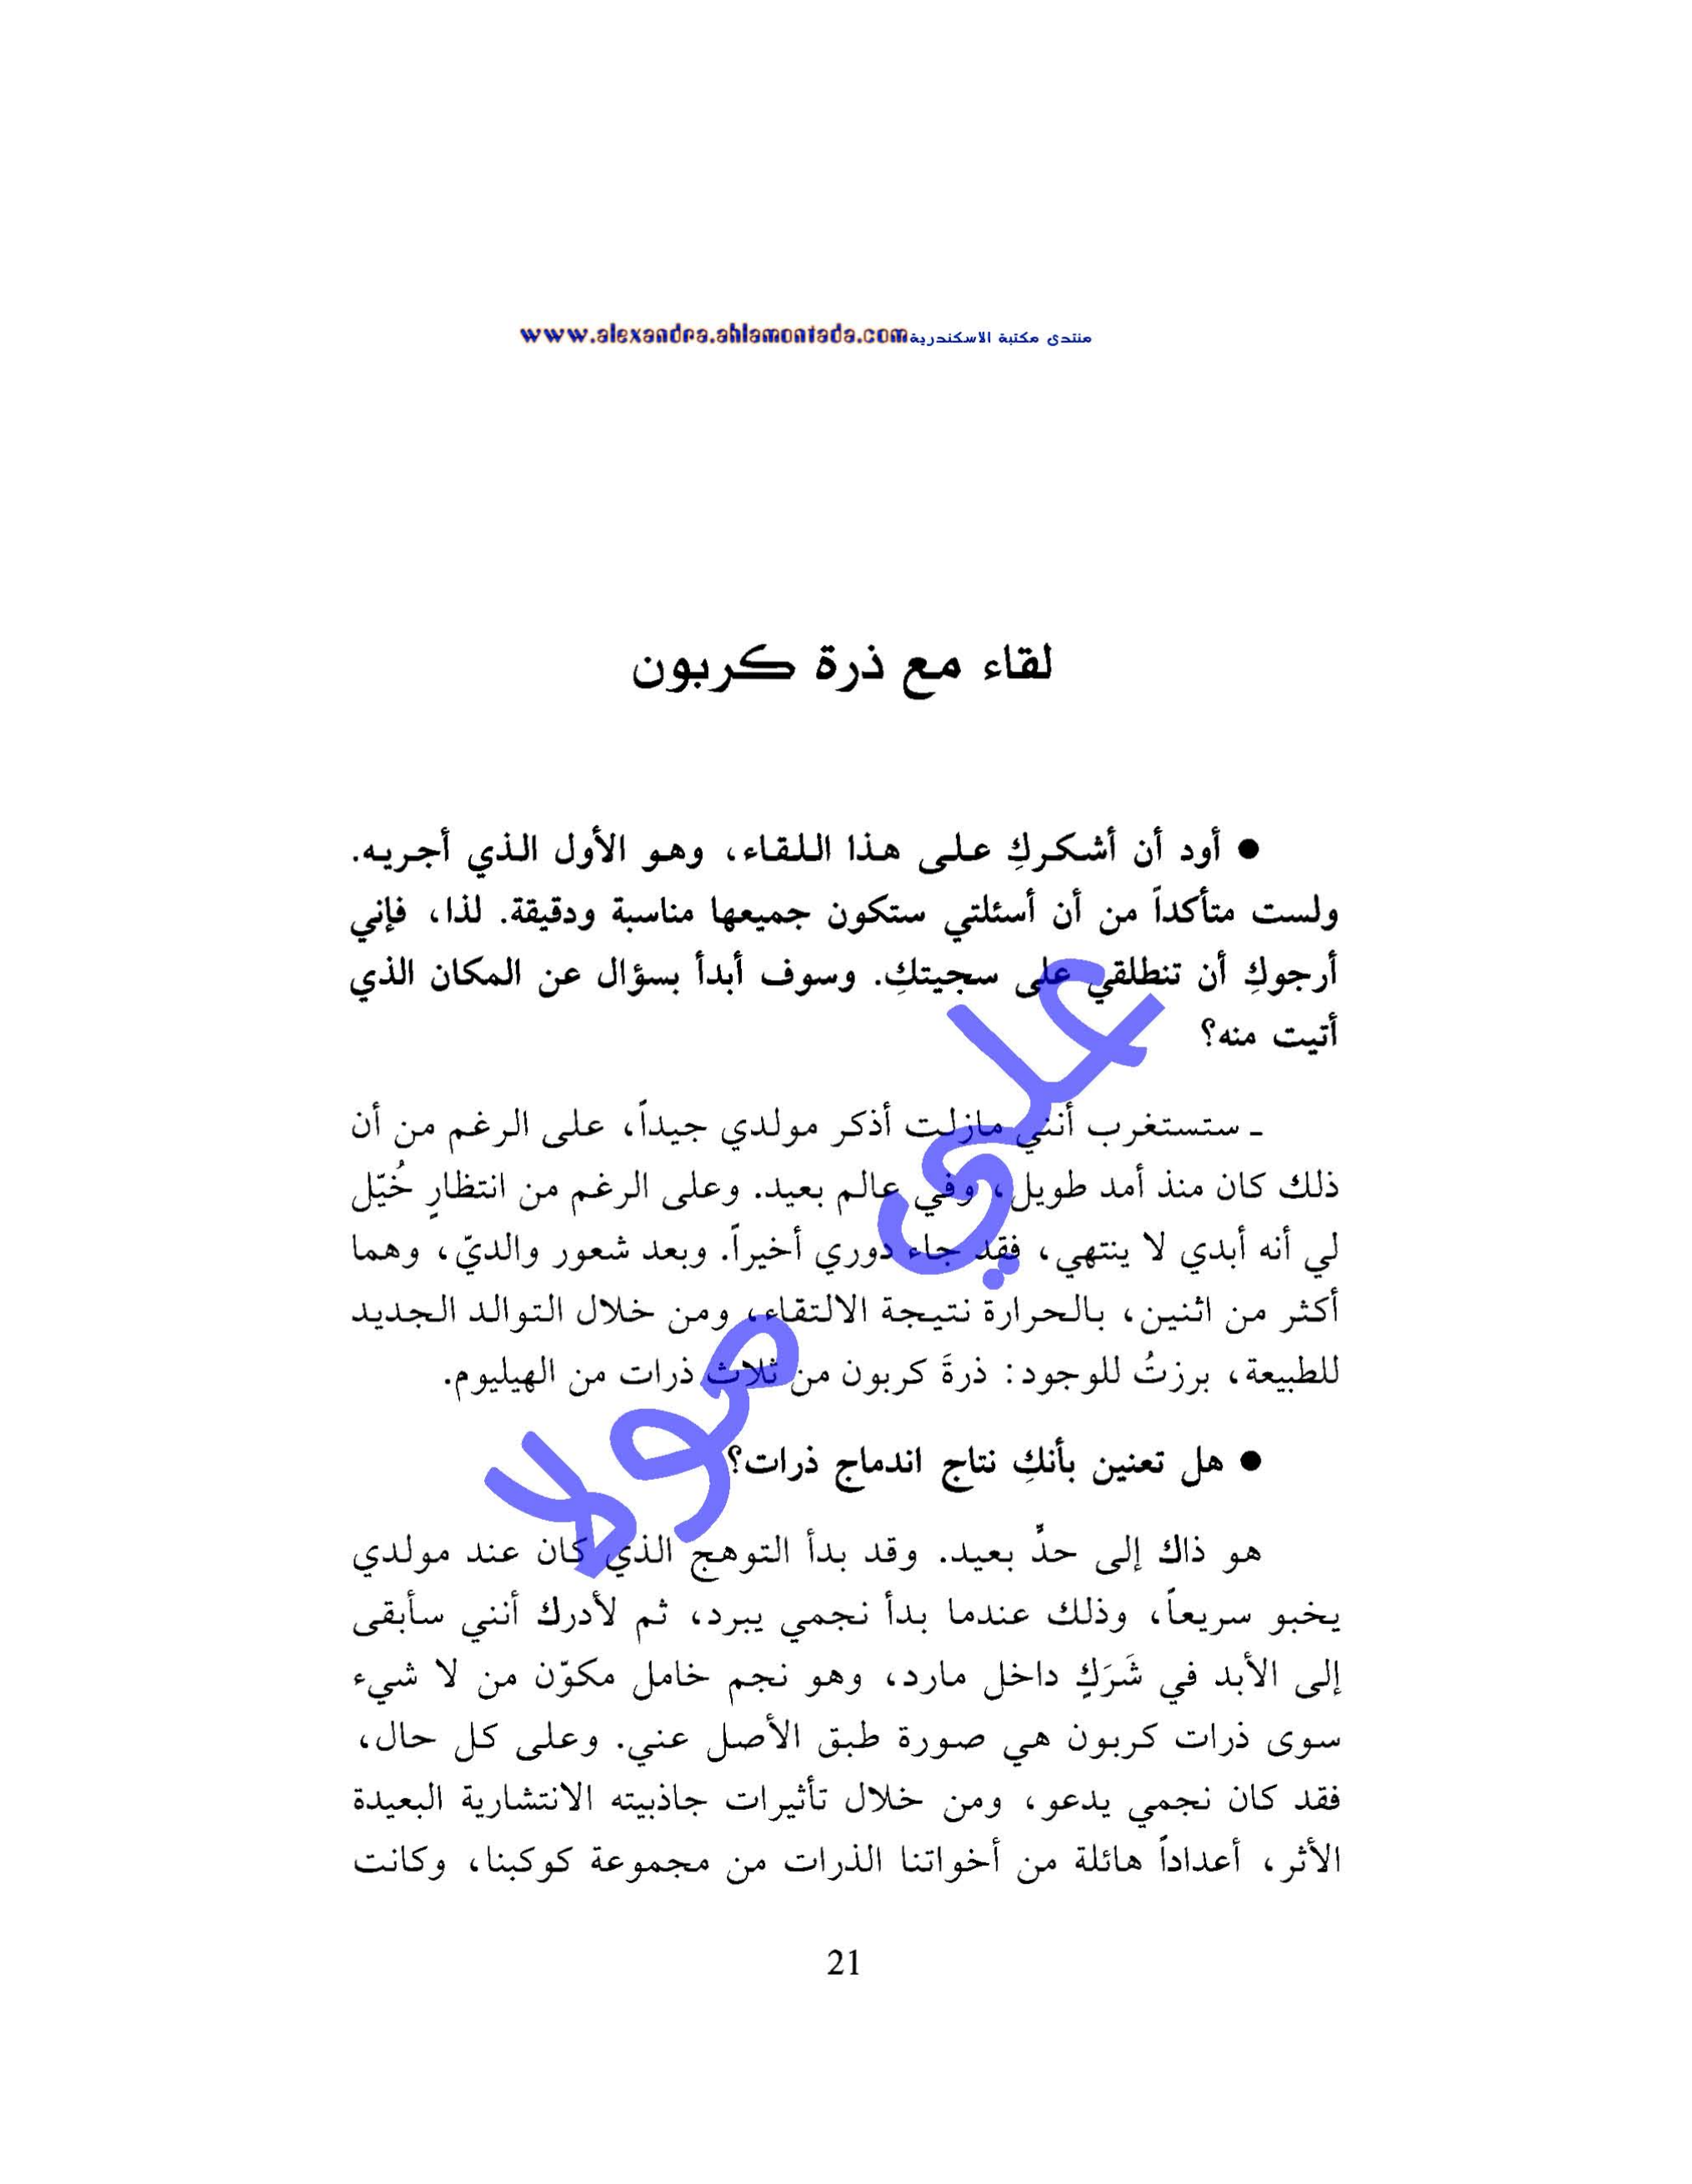 منتدى مكتبة الاسكندرية www.alexandra.ahlamontada.com
لقاء مع ذرة كربون
● أود أن أشكركِ على هذا اللقاء، وهو الأول الذي أجريه.
ولست متأكداً من أن أسئلتي ستكون جميعها مناسبة ودقيقة. لذا، فإني
أرجوكِ أن تنطلقي على سجيتكِ. وسوف أبدأ بسؤال عن المكان الذي
أتيت منه؟
ـ ستستغرب أنني مازلت أذكر مولدي جيداً، على الرغم من أن
ذلك كان منذ أمد طويل، وفي عالم بعيد. وعلى الرغم من انتظارٍ خُيّل
لي أنه أبدي لا ينتهي، فقد جاء دوري أخيراً. وبعد شعور والديّ، وهما
أكثر من اثنين، بالحرارة نتيجة الالتقاء، ومن خلال التوالد الجديد
للطبيعة، برزتُ للوجود: ذرةَ كربون من ثلاث ذرات من الهيليوم.
● هل تعنين بأنكِ نتاج اندماج ذرات؟
هو ذاك إلى حدٍّ بعيد. وقد بدأ التوهج الذي كان عند مولدي
يخبو سريعاً، وذلك عندما بدأ نجمي يبرد، ثم لأدرك أنني سأبقى
إلى الأبد في شَرَكٍ داخل مارد، وهو نجم خامل مكوّن من لا شيء
سوى ذرات كربون هي صورة طبق الأصل عني. وعلى كل حال،
فقد كان نجمي يدعو، ومن خلال تأثيرات جاذبيته الانتشارية البعيدة
الأثر، أعداداً هائلة من أخواتنا الذرات من مجموعة كوكبنا، وكانت
21
علي مولا